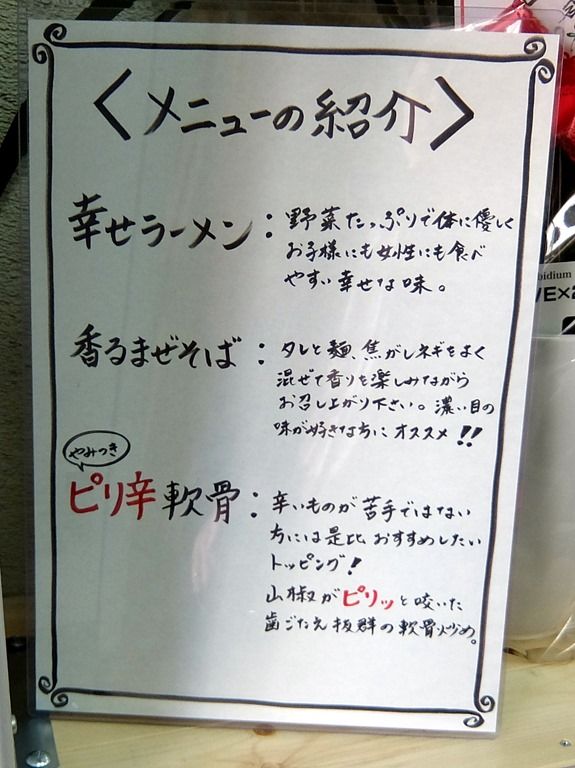 〈メニューの紹介〉
幸せラーメン：野菜たっぷりで体に優しく
お子様にも女性にも食べ
やすい幸せな味。
香るまぜそば：タレと麺、焦がしネギをよく
混ぜて香りを楽しみながら
お召し上がり下さい。濃い目の
味が好きな方に オススメ!!
やみつき
ピリ辛軟骨：辛いものが苦手ではない
方には是比おすすめしたい
トッピング!
山椒がピリッと咬いた
歯ごたえ抜群の軟骨炒め。
bidium
VE×2